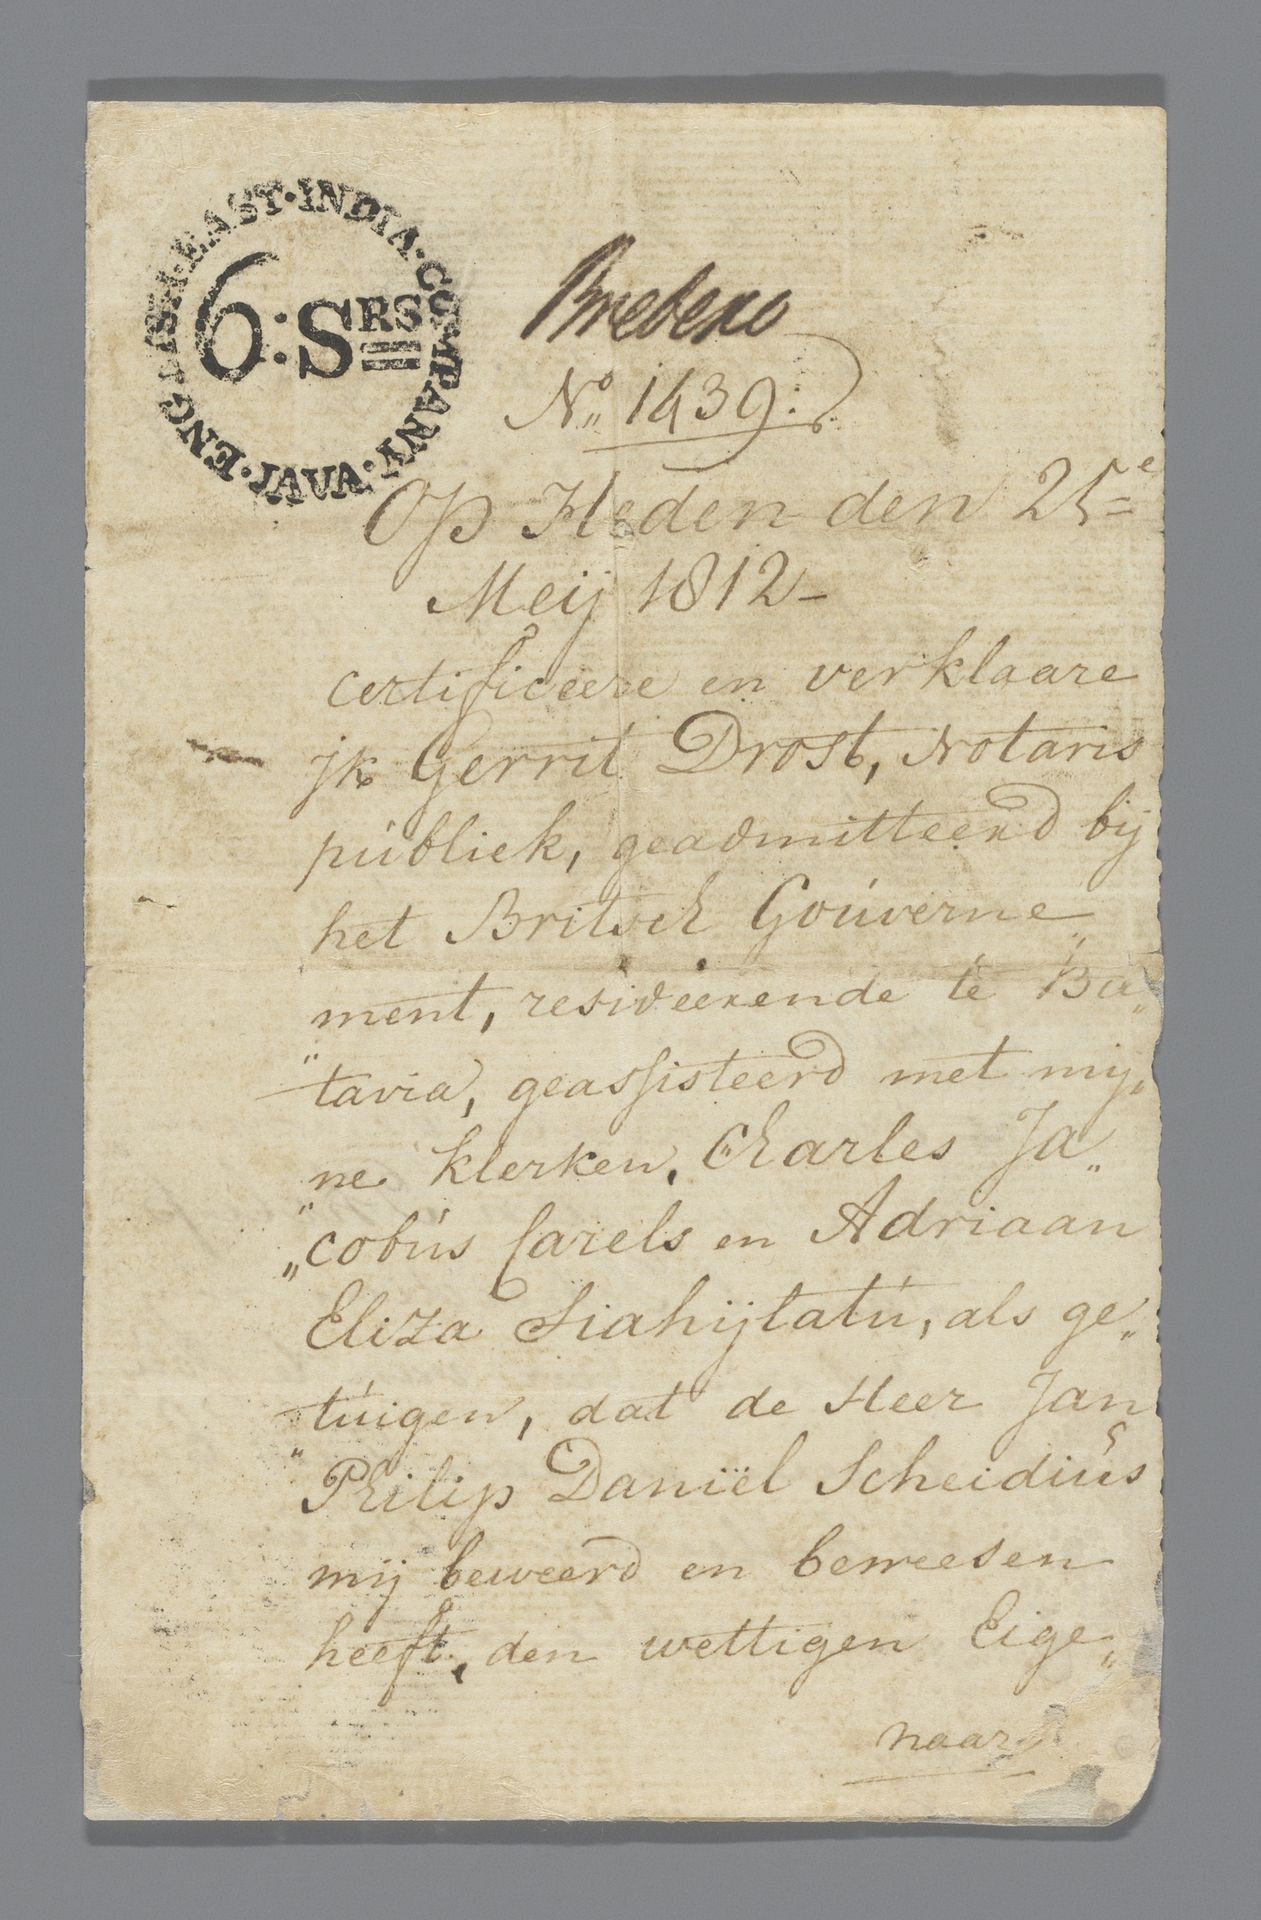 ENGLISH·EAST·INDIA·COMPANY·JAVA·
6:SRS
No„ 1439:
Op Heden den 25e
Meij 1812-
certificeere en verklaare
jk Gerrit Drost, Notaris
publiek, geadmitteerd bij
het Britsch Gouverne„
ment, resideerende te Ba„
„tavia, geassisteerd met mij„
„ne klerken, Charles Ja„
„cobus Carels en Adriaan
Eliza Siahijlatu, als ge„
„tuigen, dat de Heer Jan
Philip Daniël Scheidius
mij beweerd en beweesen
heeft, den wettigen Eige„
naar